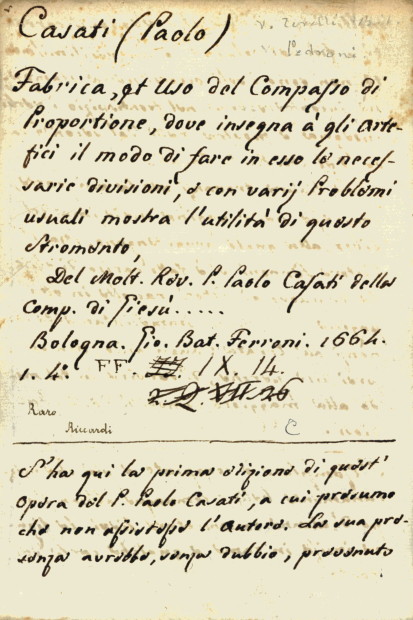 Casati (Paolo)
Fabrica, et Uso del Compasso di
Proportione, dove insegna à gli Arte-
fici il modo di fare in esso le neces-
sarie divisioni, e con varij Problemi
usuali mostra l'utilità di questo
Stromento,
Del Molt. Rev. P. Paolo Casati della
Comp. di Giesù.....
Bologna. Gio. Bat. Ferroni. 1664.
1. 4°. FF. IX. 14.
Raro
Riccardi
C
S'ha qui la prima edizione di quest'
Opera del P. Paolo Casati, a cui presumo
che non assistesse l'Autore. La sua pre-
senza avrebbe, senza dubbio, prevenuto